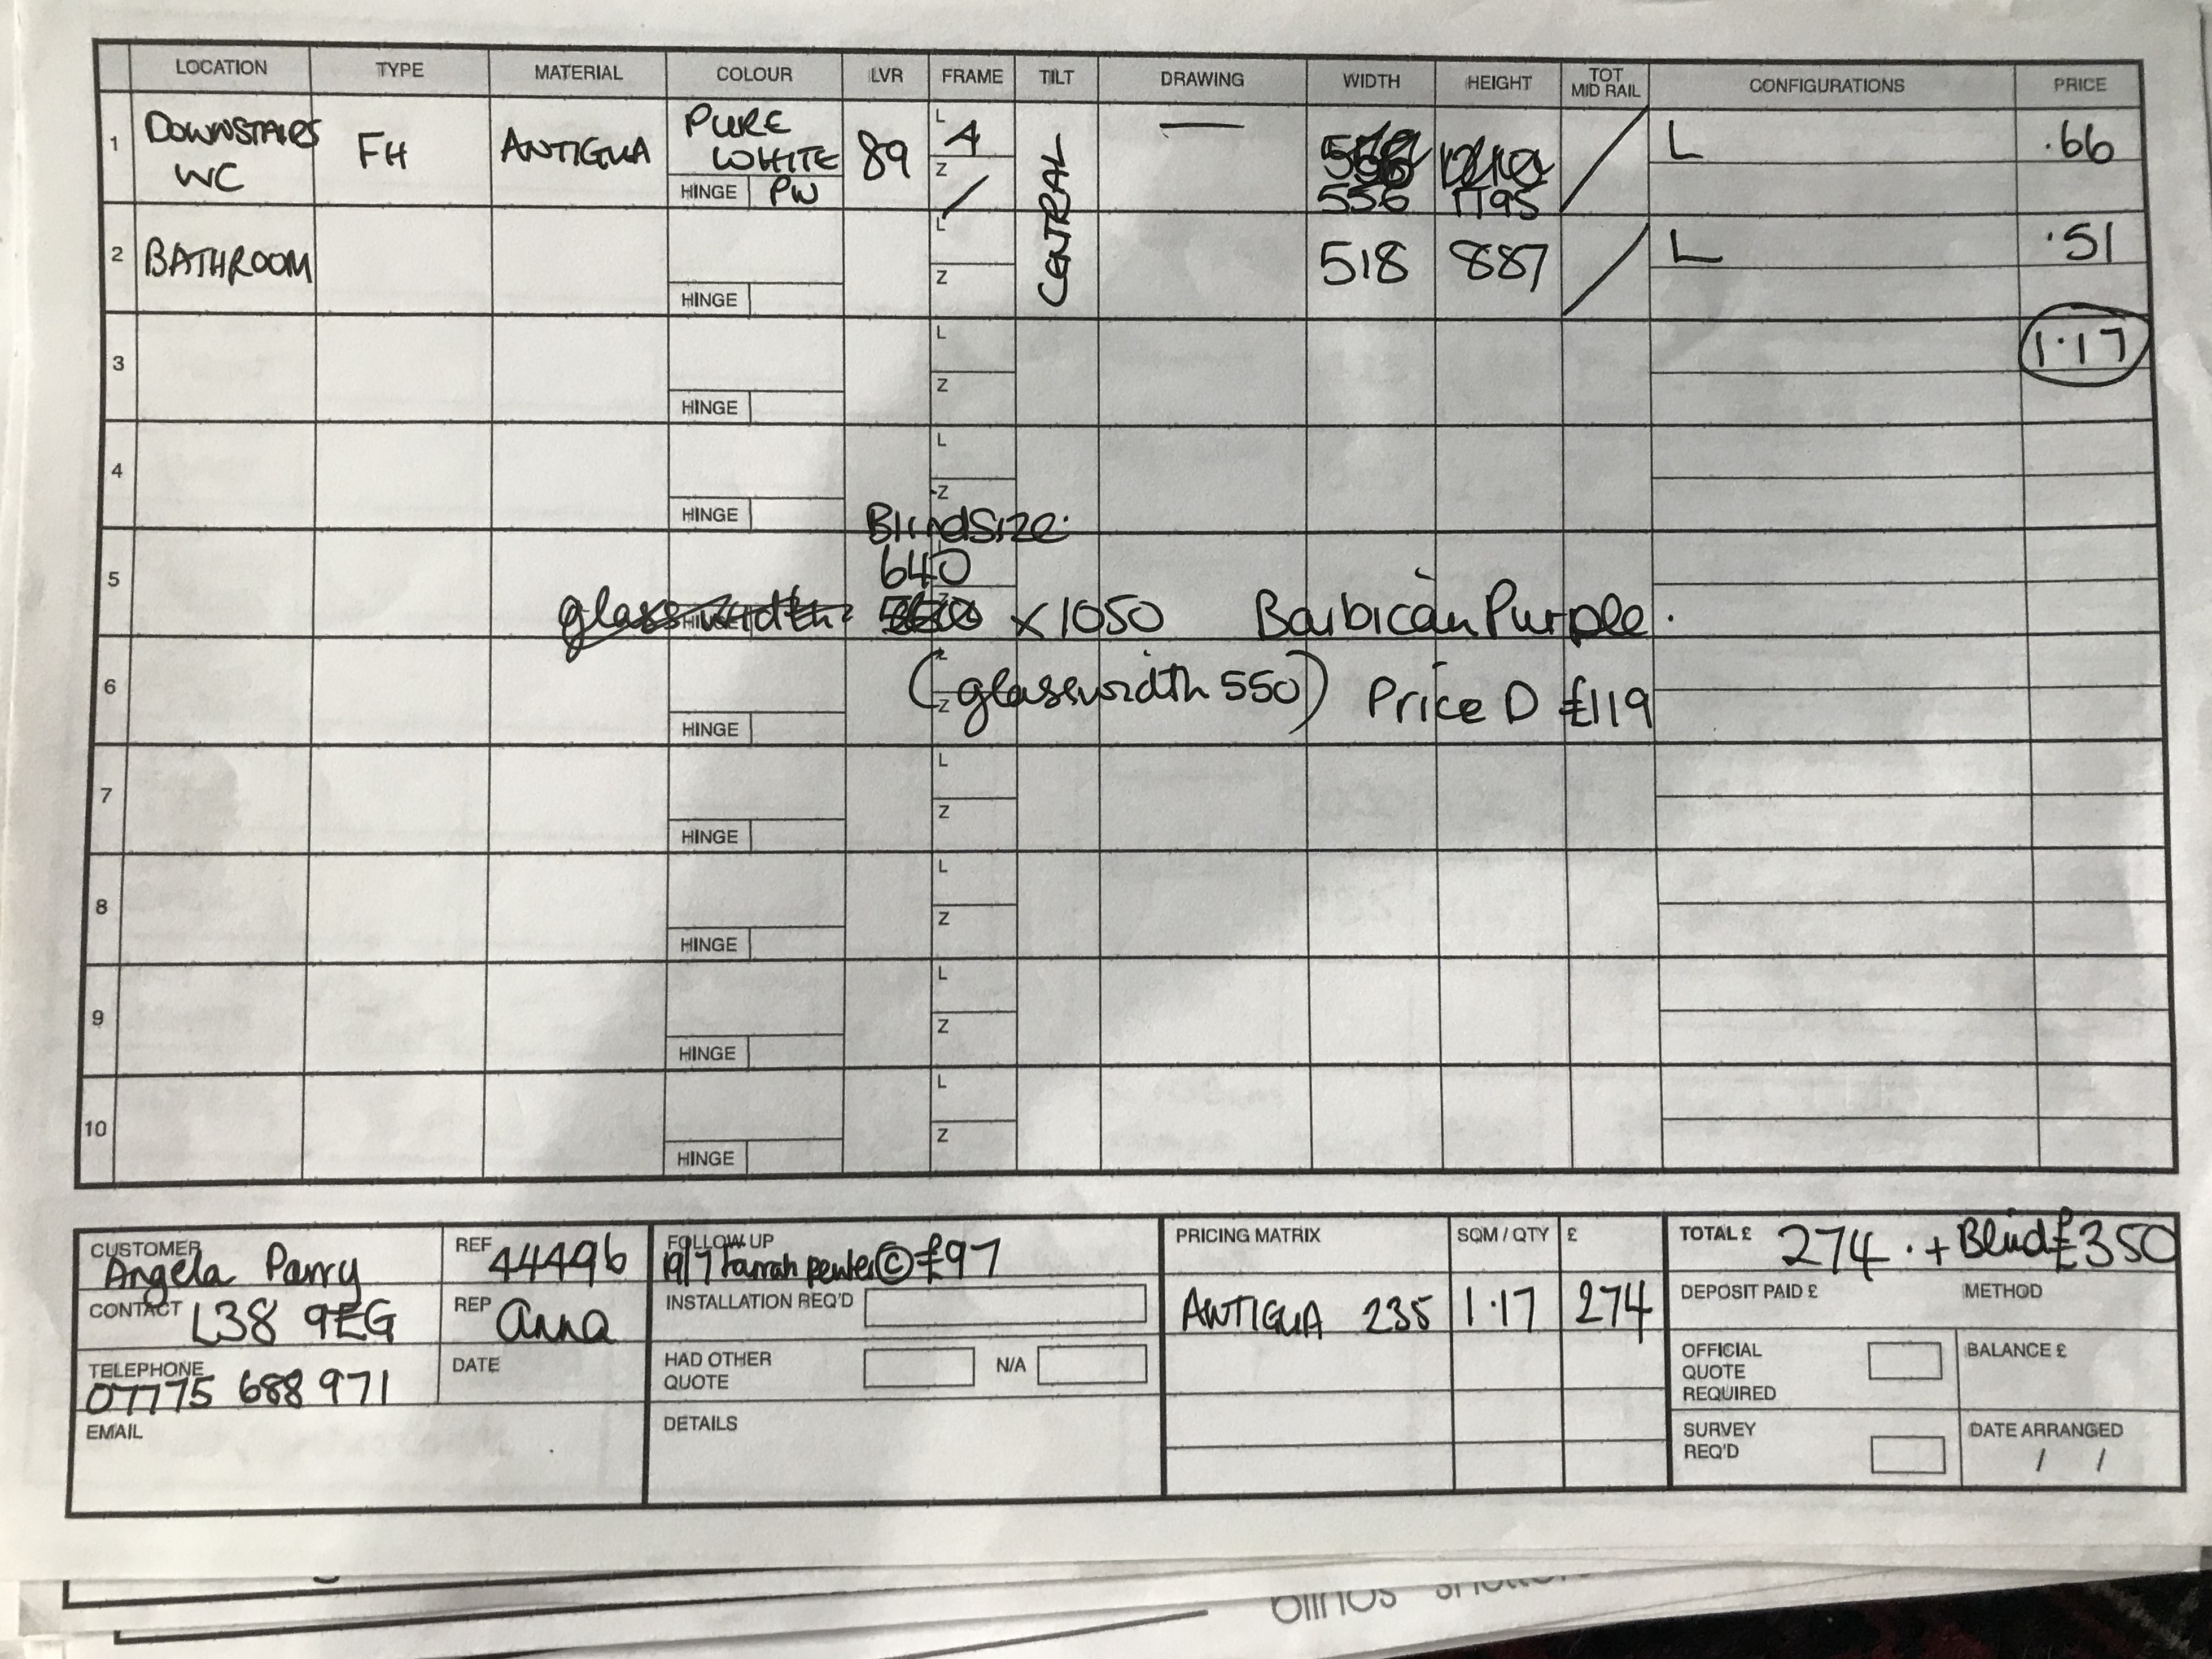 LOCATION TYPE MATERIAL COLOUR LVR FRAME TILT DRAWING WIDTH HEIGHT TOT MID RAIL CONFIGURATIONS PRICE
1 DOWNSTAIRS WC FH ANTIGUA PURE WHITE 89 L 4 Z CENTRAL L .66
HINGE PW 556 1195
2 BATHROOM L Z 518 887 L .51
HINGE
3 L Z 1.17
HINGE
4 L Z
HINGE
Blind Size:
5 640
glass width: x 1050 Barbican Purple.
HINGE
6 L Z (glass width 550) Price D £119
HINGE
7 L Z
HINGE
8 L Z
HINGE
9 L Z
HINGE
10 L Z
HINGE
CUSTOMER Angela Parry
REF 44496
CONTACT L38 9EG
REP anna
TELEPHONE 07775 688 971
DATE
EMAIL
FOLLOW UP
19/7 @ £97
INSTALLATION REQ'D
HAD OTHER QUOTE N/A
DETAILS
PRICING MATRIX SQM / QTY £
ANTIGUA 235 1.17 274
TOTAL £ 274. + Blind £350
DEPOSIT PAID £ METHOD
OFFICIAL QUOTE REQUIRED
BALANCE £
SURVEY REQ'D
DATE ARRANGED
/ /